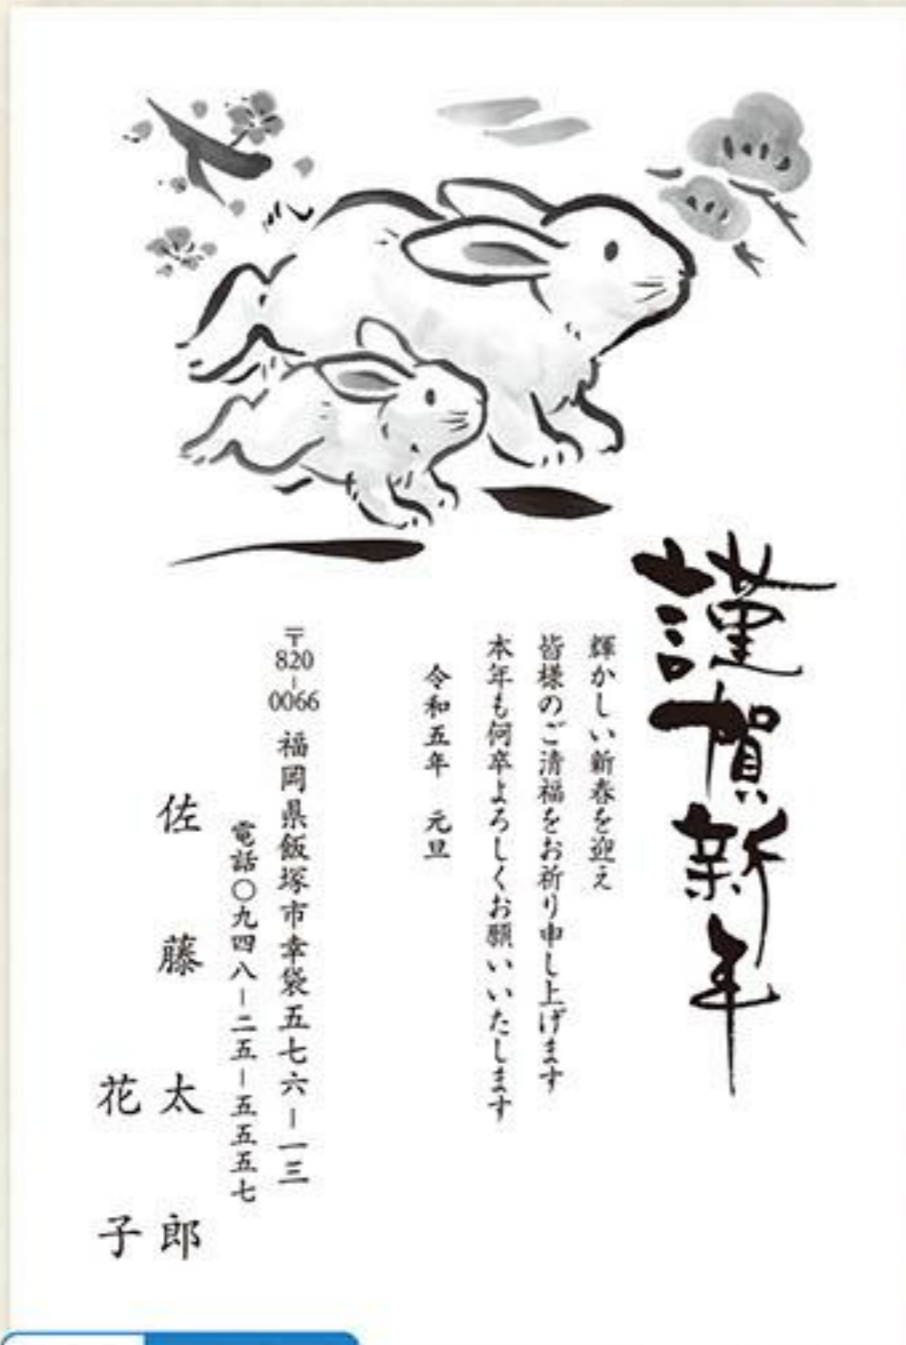 謹賀新年
輝かしい新春を迎え
皆様のご清福をお祈り申し上げます
本年も何卒よろしくお願いいたします
令和五年 元旦
〒820-0066 福岡県飯塚市幸袋五七六-一三
電話〇九四八-二五-五五五七
佐藤 太郎
花子